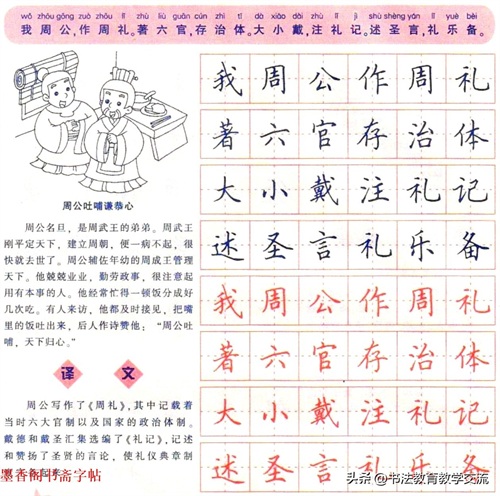 wǒ zhōu gōng zuò zhōu lǐ zhù liù guān cún zhì tǐ dà xiǎo dài zhù lǐ jì shù shèng yán lǐ yuè bèi
我周公,作周礼。著六官,存治体。大小戴,注礼记。述圣言,礼乐备。
我周公作周礼
著六官存治体
大小戴注礼记
述圣言礼乐备
我周公作周礼
著六官存治体
大小戴注礼记
述圣言礼乐备
周公吐哺谦恭心
周公名旦，是周武王的弟弟。周武王
刚平定天下，建立周朝，便一病不起，很
快就去世了。周公辅佐年幼的周成王管理
天下。他兢兢业业，勤劳政事，很注意起
用有本事的人。他经常忙得一顿饭分成好
几次吃。有人来访，他都及时接见，把嘴
里的饭吐出来，后人作诗赞他：“周公吐
哺，天下归心。”
译文
周公写作了《周礼》，其中记载着
当时六大官制以及国家的政治体制。
戴德和戴圣汇集选编了《礼记》，记述
和赞扬了圣贤的言论，使礼仪典章制
墨香阁书斋字帖
头条 @书法教育教学交流